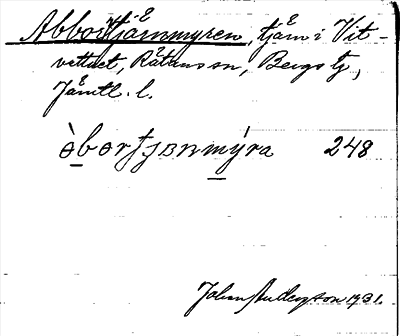 Abbortjärnmyren, tjärn i Vit-
vattnet, Rätans sn, Bergs tj.,
Jämtl. l.
òbortjɜnmýra 248
Johan Anderzson 1931.